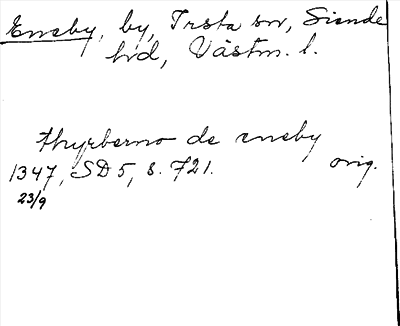 Eneby, by, Irsta sn, Siende
hd, Västm. l.
thyrberno de eneby
1347, SD 5, s. 721. orig.
23/9